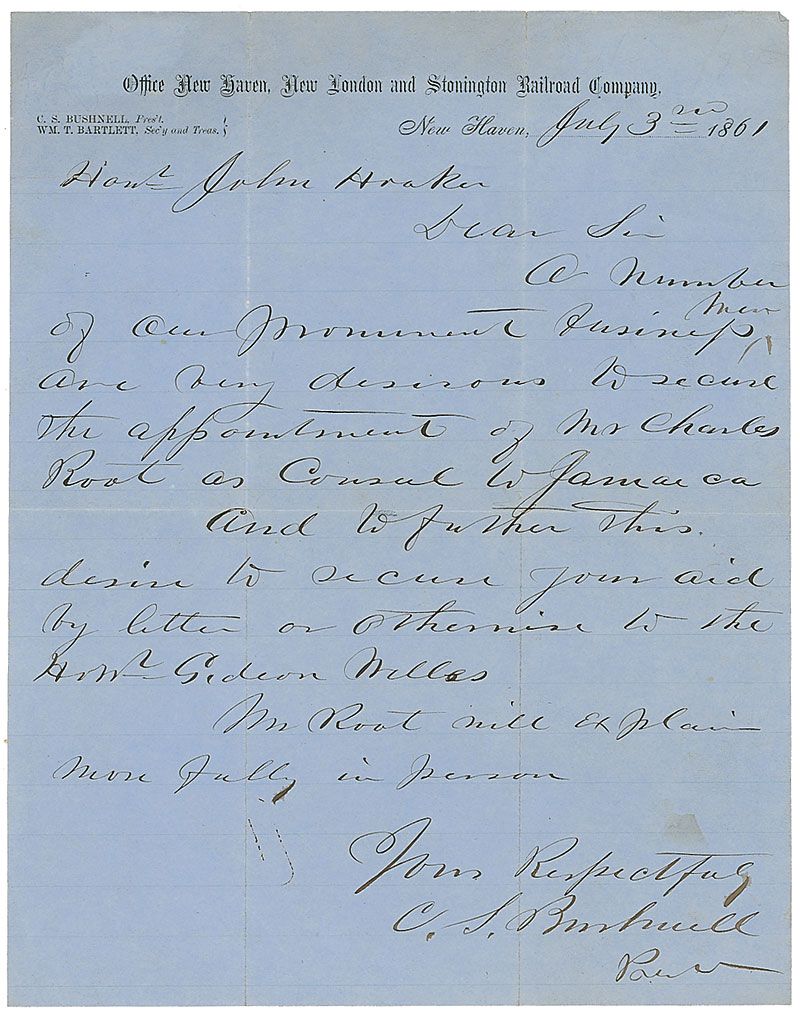 Office New Haven, New London and Stonington Railroad Company,
C. S. BUSHNELL, Pres't.
WM. T. BARTLETT, Sec'y and Treas.
New Haven, July 3rd 1861
Honl John Hooker
Dear Sir
A number
of our prominent business men
are very desirous to secure
the appointment of Mr Charles
Root as Consul to Jamaica
And to futher this
desire to secure your aid
by letter or otherwise to the
Honl Gideon Welles
Mr Root will explain
more fully in person
Yours Respectfuly
C. S. Bushnell
Prest